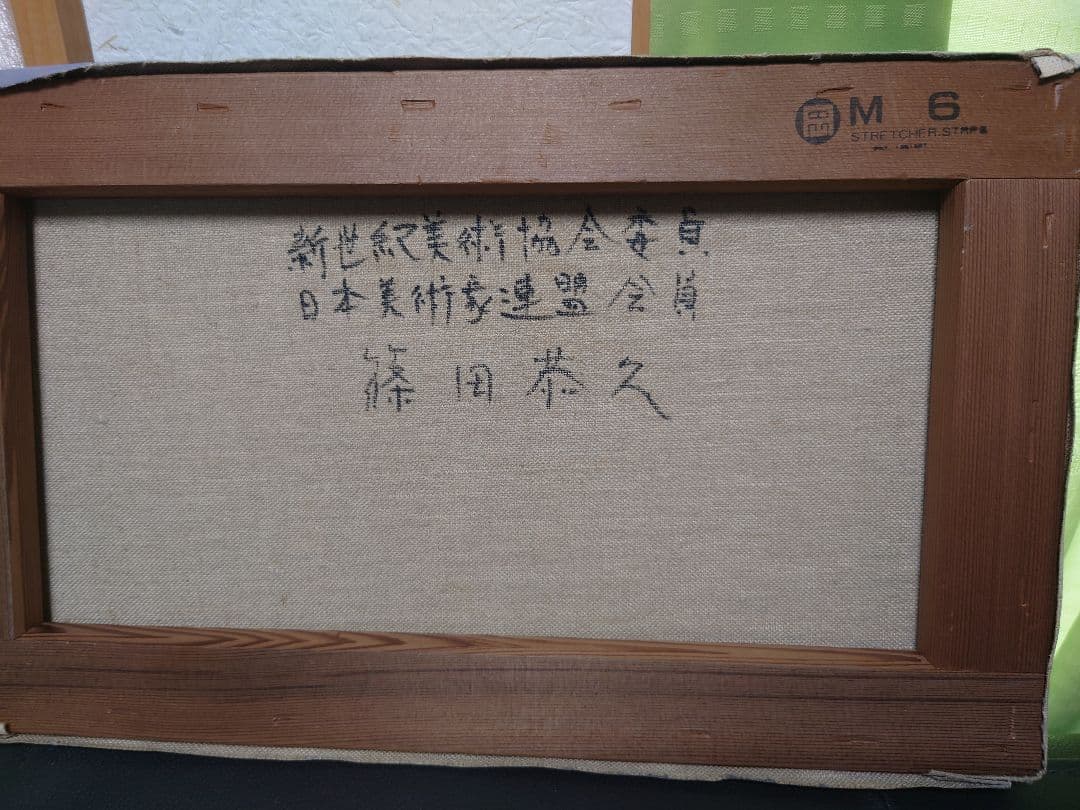 M 6
STRETCHER.STAPE
新世紀美術協会委員
日本美術家連盟会員
篠田恭久